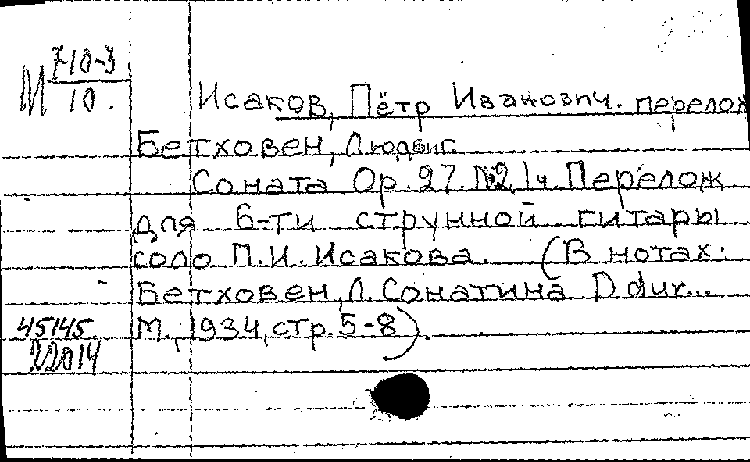 М 7-10-3
10.
Исаков, Пётр Иванович. перелож
Бетховен, Людвиг.
Соната Ор. 27 №2, Iч. Перелож
для 6-ти струнной гитары
соло П.И. Исакова. (В нотах:
Бетховен, Л. Сонатина D dur...
М., 1934, стр. 5-8).
45145
22014